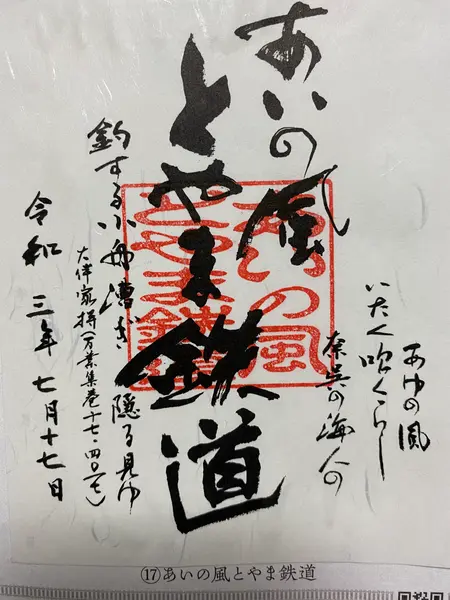 あゆの風
いたく吹くらし
奈呉の海人の
あいの風
とやま鉄道
あいの風
とやま鉄道
釣する小舟漕ぎ隠る見ゆ
大伴家持(万葉集巻十七・四〇一七)
令和三年七月十七日
⑰あいの風とやま鉄道